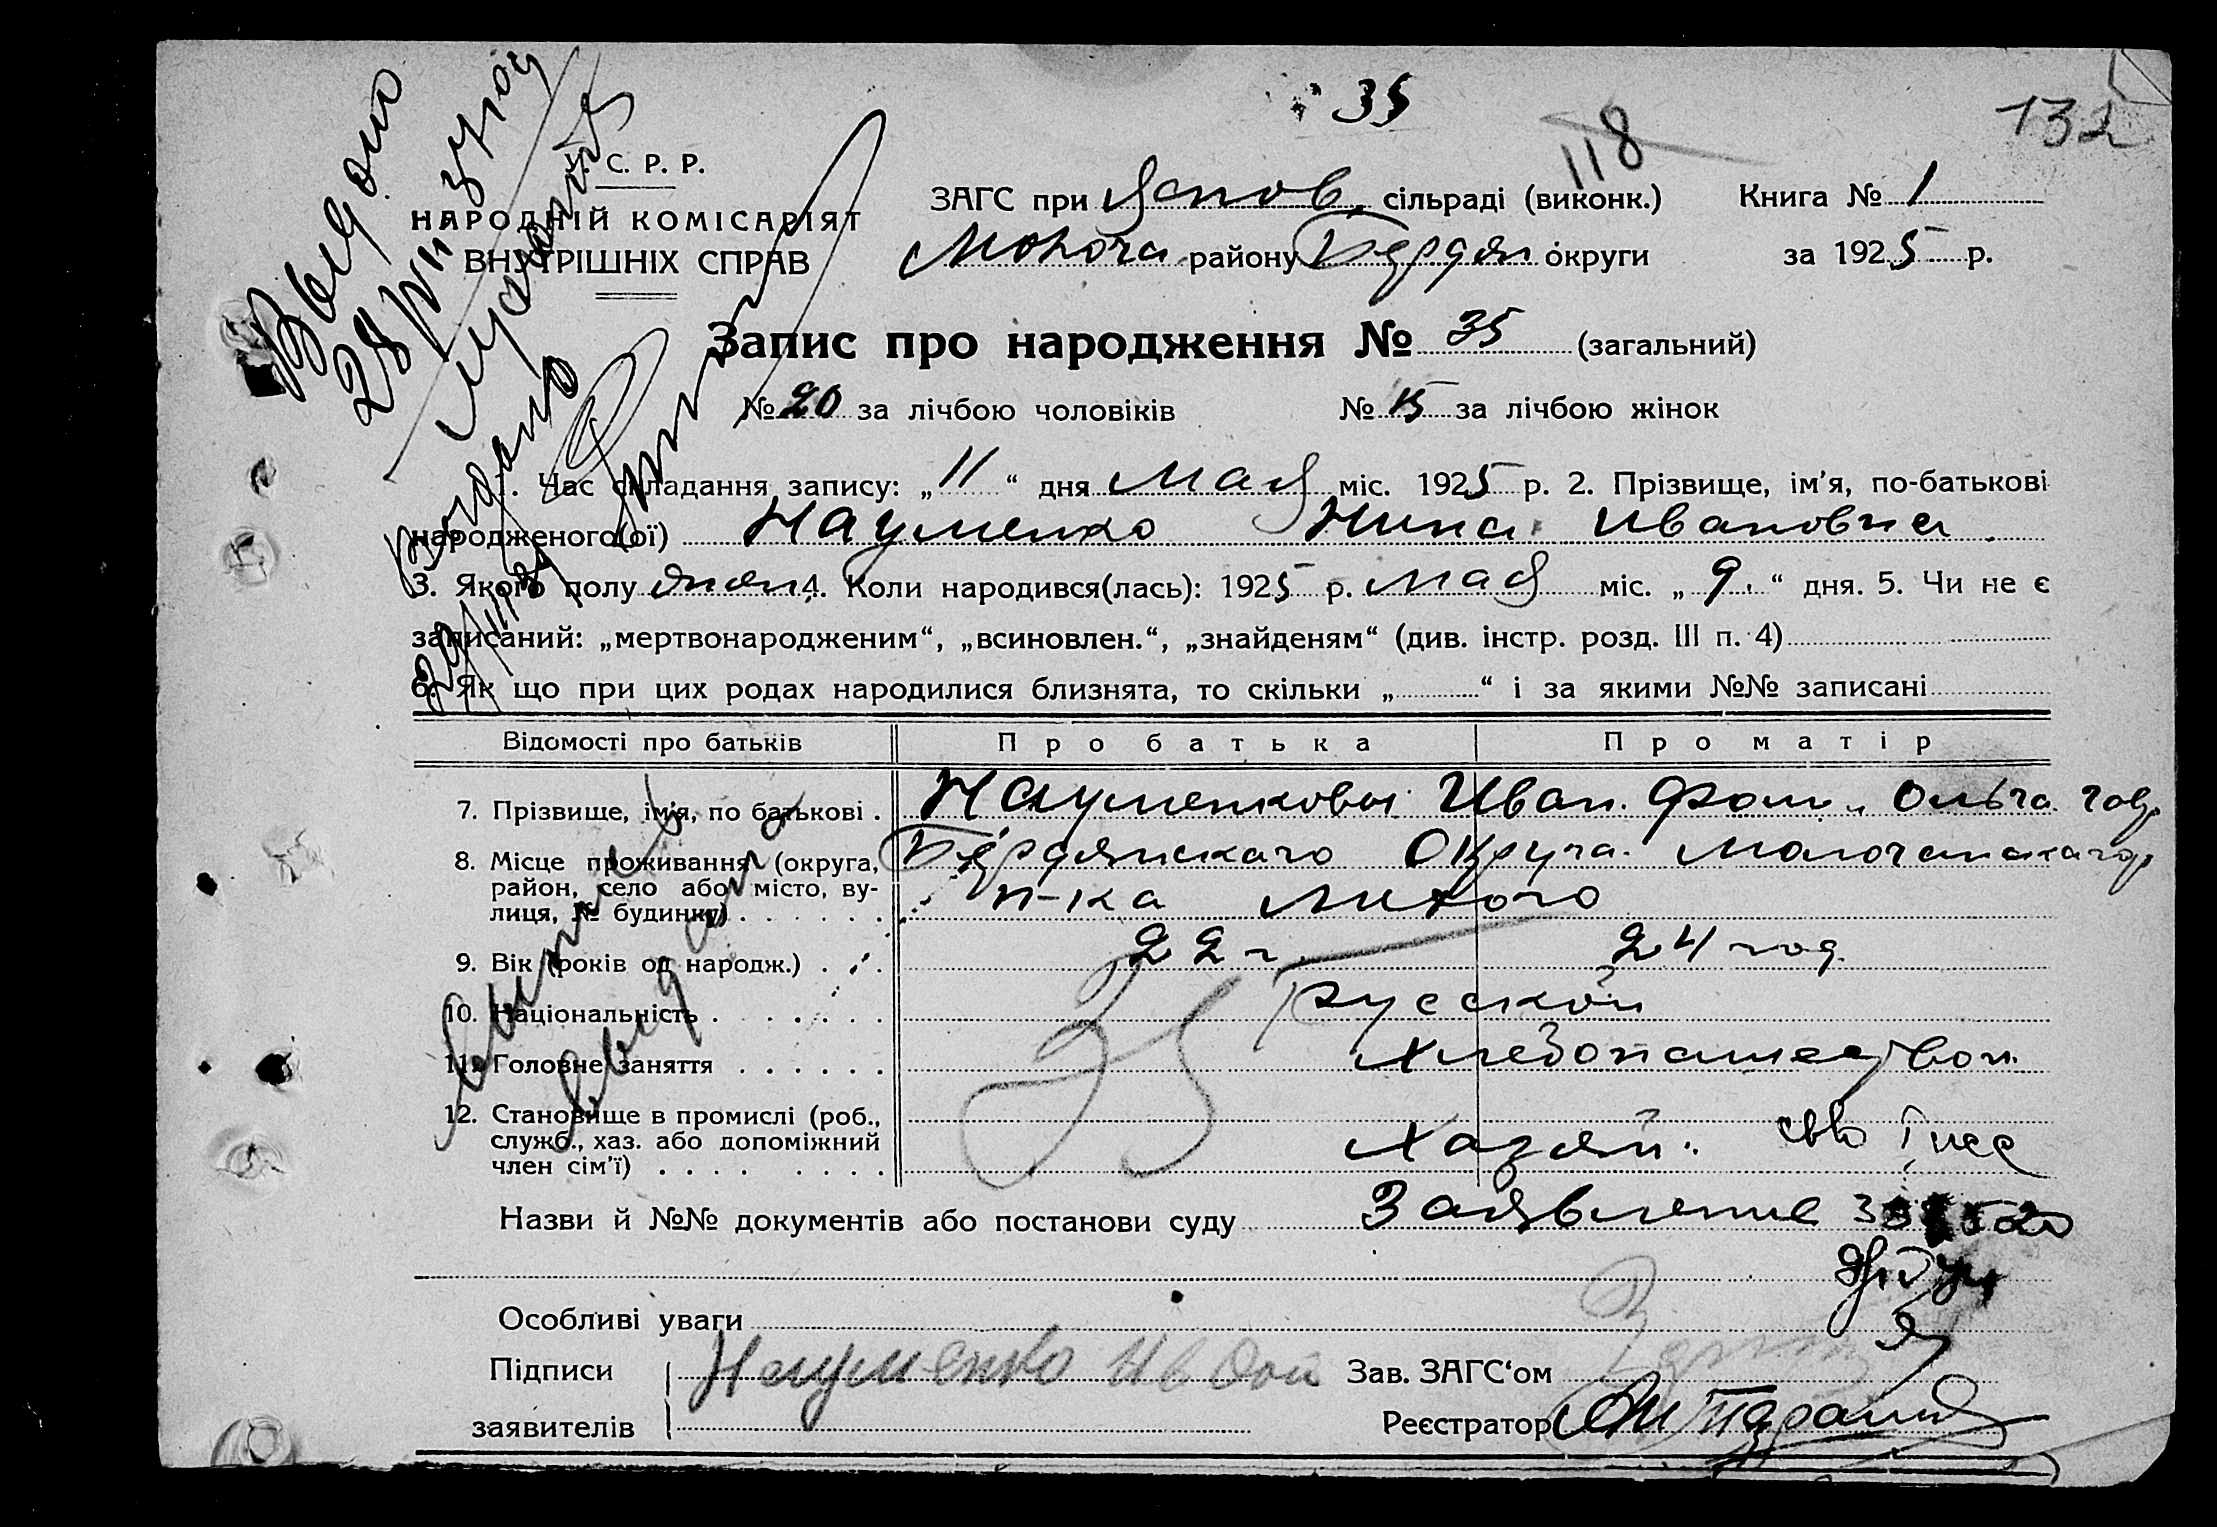 35
118
132
У. С. Р. Р.
НАРОДНІЙ КОМІСАРІЯТ
ВНУТРІШНІХ СПРАВ
ЗАГС при сільраді (виконк.) Книга № 1
Молоча району Бердян округи за 1925 р.
Запис про народження № 35 (загальний)
№ 20 за лічбою чоловіків № 15 за лічбою жінок
1. Час складання запису: „11“ дня Мая міс. 1925 р. 2. Прізвище, ім’я, по-батькові
народженого(ої) Науменко Нина Ивановна
3. Якого полу жен. 4. Коли народився(лась): 1925 р. мая міс. „9.“ дня. 5. Чи не є
записаний: „мертвонародженим“, „всиновлен.“, „знайденям“ (див. інстр. розд. III п. 4)
6. Як що при цих родах народилися близнята, то скільки „ “ і за якими №№ записані
Відомості про батьків Про батька Про матір
7. Прізвище, ім’я, по батькові . Науменковы Иван. Фом. Ольга
8. Місце проживання (округа, Бердянскаго Округа. Молочанскаго р.
район, село або місто, ву-
лиця, № будинку) п-ка
9. Вік (років од народж.) . . . 22 г. 24 год.
10. Національність . . . . . . . Русской
11. Головне заняття . . . . . . Хлебопашество
12. Становище в промислі (роб.,
служб., хаз. або допоміжний Хазяй.
член сім’ї) . . . . . . . .
35
Назви й №№ документів або постанови суду Заявление
Особливі уваги
Підписи Науменко Иван Зав. ЗАГС‘ом
заявителів Реєстратор
Выдано
28
Выдано
29
выдано